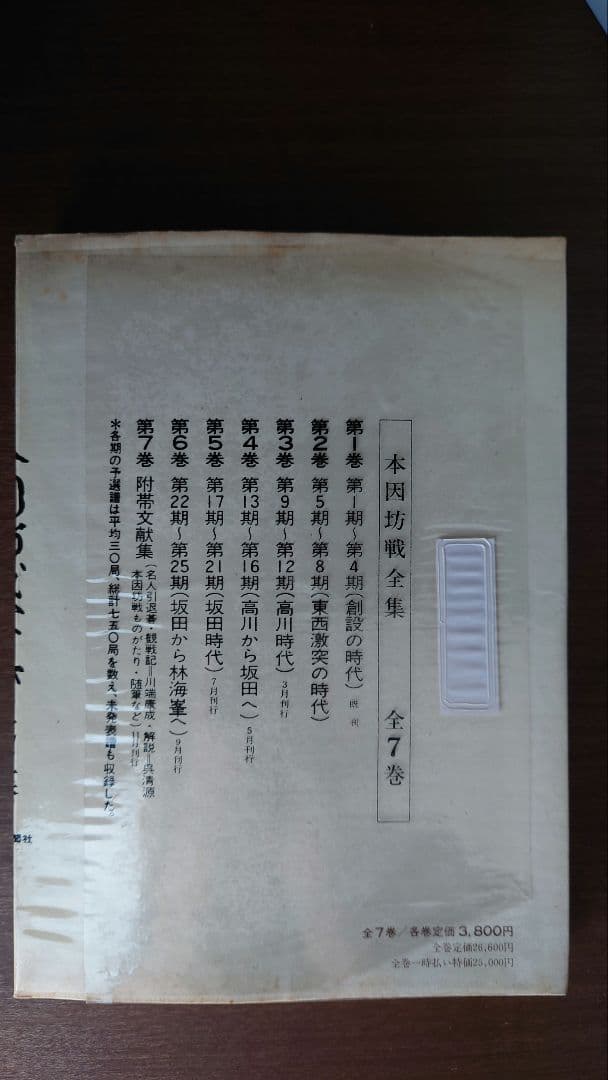 本因坊戦全集 全7巻
第1巻 第1期〜第4期(創設の時代) 既刊
第2巻 第5期〜第8期(東西激突の時代)
第3巻 第9期〜第12期(高川時代) 3月刊行
第4巻 第13期〜第16期(高川から坂田へ) 5月刊行
第5巻 第17期〜第21期(坂田時代) 7月刊行
第6巻 第22期〜第25期(坂田から林海峯へ) 9月刊行
第7巻 附帯文献集(名人引退碁・観戦記=川端康成・解説=呉清源
本因坊戦ものがたり・随筆など) 11月刊行
*各期の予選譜は平均三〇局、総計七五〇局を数え、未発表譜も収録した。
全7巻/各巻定価3,800円
全巻定価26,600円
全巻一時払い特価25,000円
聞社